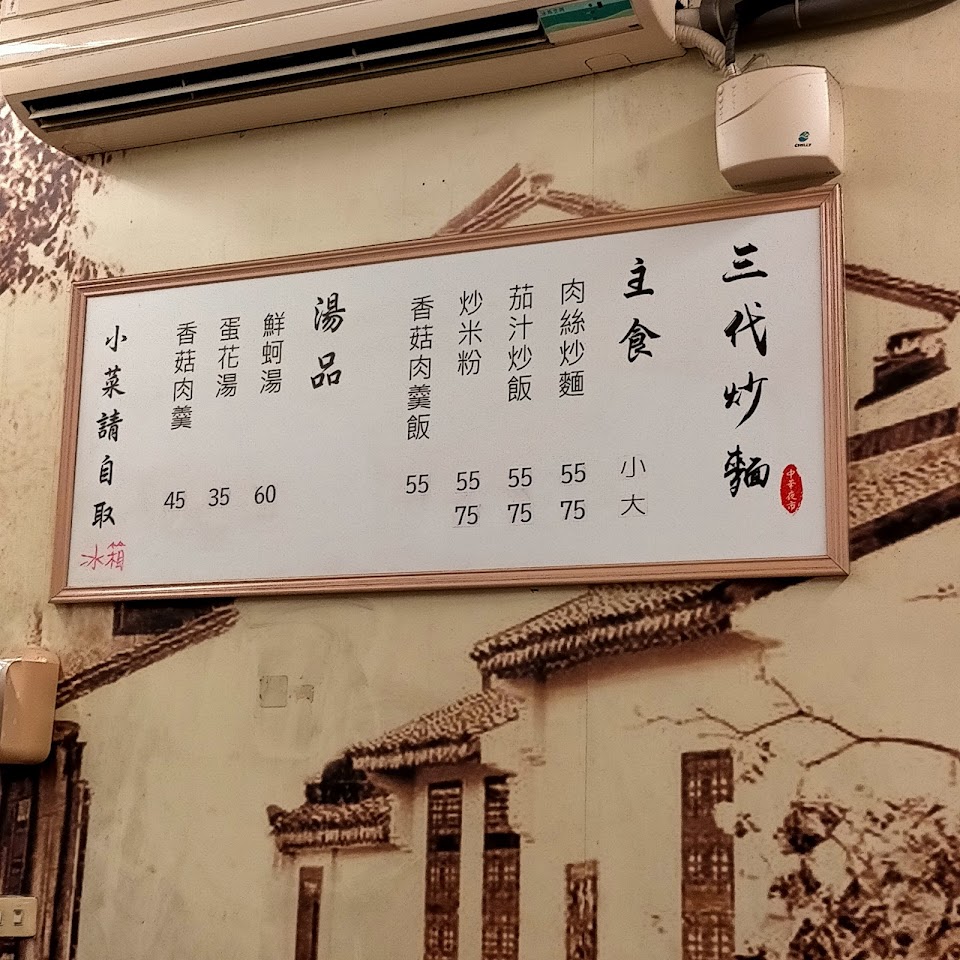 三代炒麵
中華夜市
主食
小
大
肉絲炒麵
55
75
茄汁炒飯
55
75
炒米粉
55
75
香菇肉羹飯
55
湯品
鮮蚵湯
60
蛋花湯
35
香菇肉羹
45
小菜請自取
冰箱
CHILLY